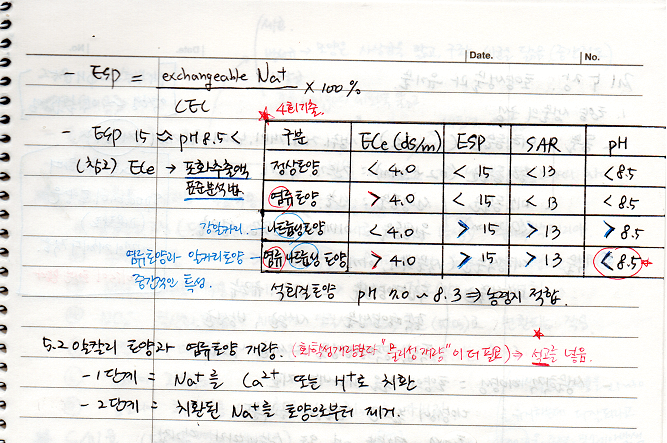 Date. No.
- ESP = exchangeable Na⁺ / CEC × 100%
★ 4회기출.
- ESP 15 ≈ pH 8.5 <
(참고) ECe → 포화추출액
표준분석방법
구분 ECe (ds/m) ESP SAR pH
정상토양 < 4.0 < 15 < 13 < 8.5
염류토양 > 4.0 < 15 < 13 < 8.5
강알카리. 나트륨성토양 < 4.0 > 15 > 13 > 8.5
염류토양과 알카리토양 중간적인 특성.
염류나트륨성 토양 > 4.0 > 15 > 13 < 8.5 ★
석회질토양 pH 7.0 ~ 8.3 ⇒ 농경지 적합.
5.2 알칼리 토양과 염류토양 개량. (화학성개량보다 "물리성개량"이 더 필요) → ★ 석고를 넣음.
- 1단계 = Na⁺를 Ca²⁺ 또는 H⁺로 치환
- 2단계 = 치환된 Na⁺를 토양으로부터 제거.